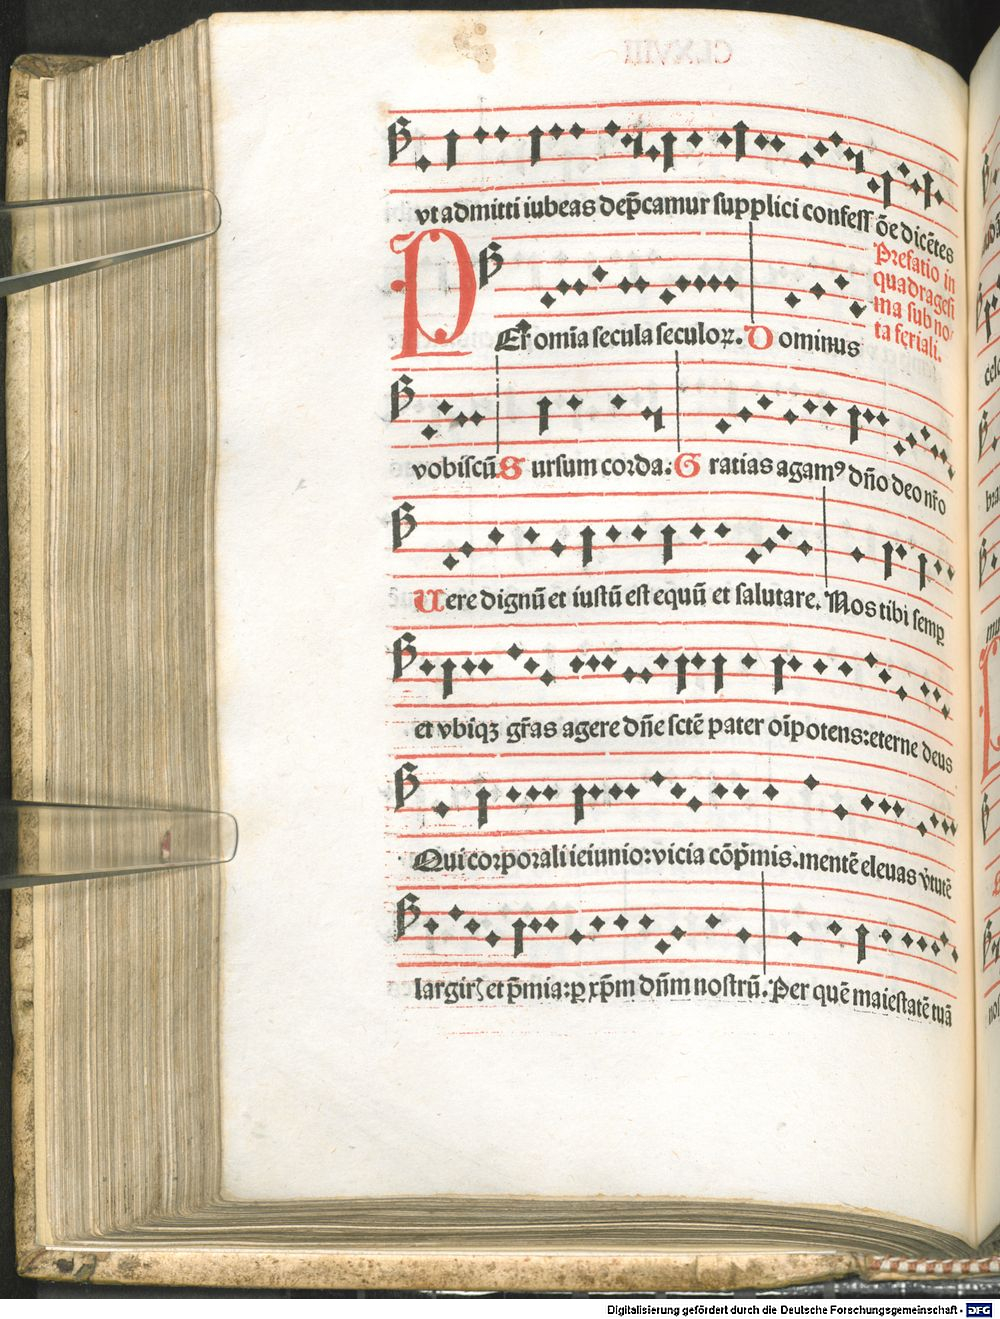 vt admitti iubeas dep̄camur supplici confeſſ ōe dicētes
Prefatio in
quadrageſi
ma ſub no
ta feriali.
PEr omīa ſecula ſeculoꝝ. Dominus
vobiſcū Surſum corda. Gratias agamꝰ dn̄o deo nr̄o
Uere dignū et iuſtū eſt equū et ſalutare. Nos tibi ſemꝑ
et vbiqꝫ gr̄as agere dn̄e ſctē pater oīpotens: eterne deus
Qui corporali ieiunio: vicia cōp̄mis. mentē eleuas v̓tutē
largirꝭ et p̄mia: ꝑ xp̄m dn̄m noſtrū. Per quē maieſtatē tuā
Digitalisierung gefördert durch die Deutsche Forschungsgemeinschaft - DFG